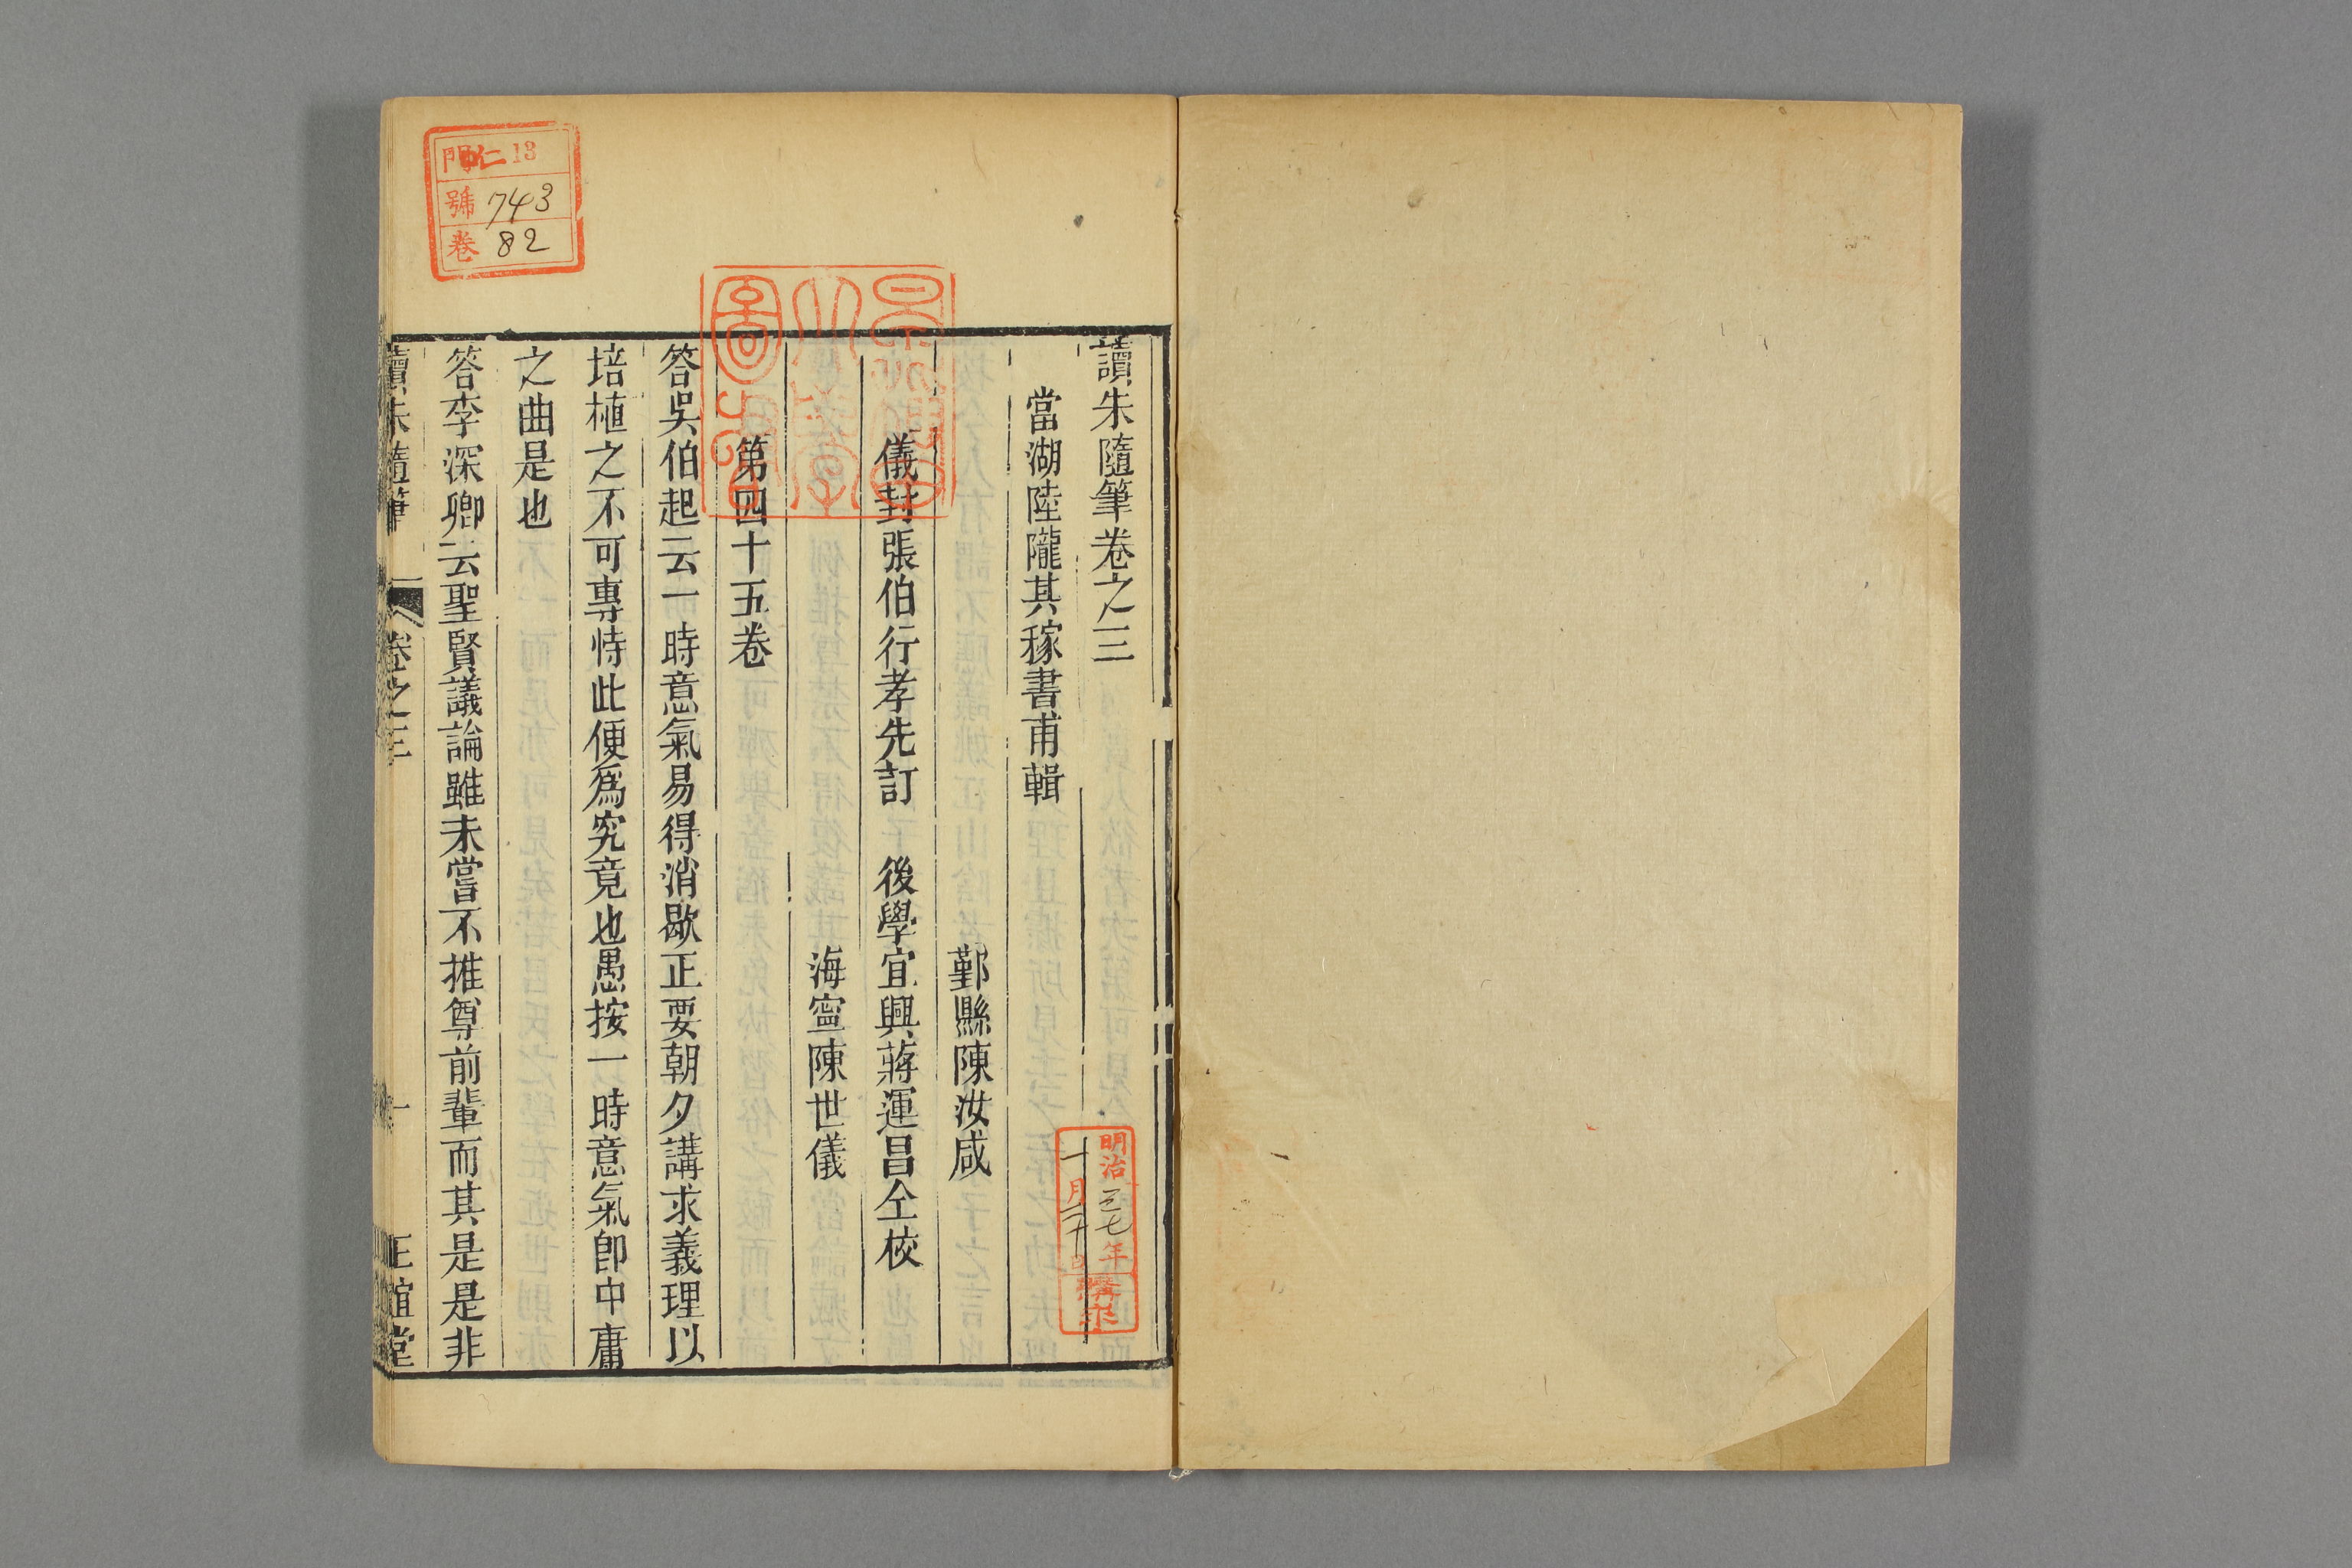 讀朱隨筆卷之三
當湖陸隴其稼書甫輯
鄞縣陳汝咸
儀封張伯行孝先訂 後學宜興蔣運昌仝校
海寧陳世儀
第四十五卷
答吳伯起云一時意氣易得消歇正要朝夕講求義理以
培植之不可專恃此便爲究竟也愚按一時意氣卽中庸
之曲是也
答李深卿云聖賢議論雖未嘗不推尊前輩而其是是非
讀朱隨筆 卷之三 一 正誼堂
門仁13
號 743
卷 82
明治三七年
十月二十日
購求